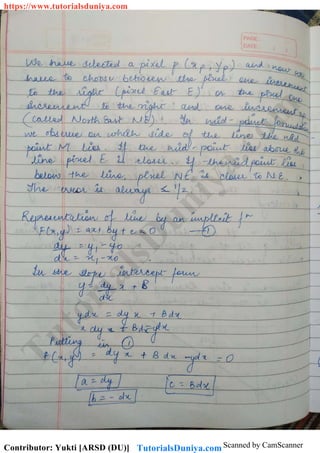 https://www.tutorialsduniya.com
PAGE
DATE
We have selected a pixel P (xp, yp) and now we
have to choose between the pixel one increment
to the right (pixel East E) or the pixel one
increment to the right and one increment up
(called NorthEast NE). In mid-point formulation
we observe on which side of the line the mid
point M lies. If the mid-point lies above the
line pixel E is closer. If the midpoint lies
below the line, pixel NE is closer to NE.
The error is always ≤ 1/2.
Representation of line by an implicit fn
F(x,y) = ax + by + c = 0 — ①
dy = y1 - y0
dx = x1 - x0
In the slope intercept form
y = dy/dx x + B
ydx = dy x + Bdx
x dy + Bdx - ydx
Putting in ①
F(x,y) = dy x + B dx - ydx = 0
a = dy
c = Bdx
b = - dx
TutorialsDuniya
Contributor: Yukti [ARSD (DU)] TutorialsDuniya.com Scanned by CamScanner